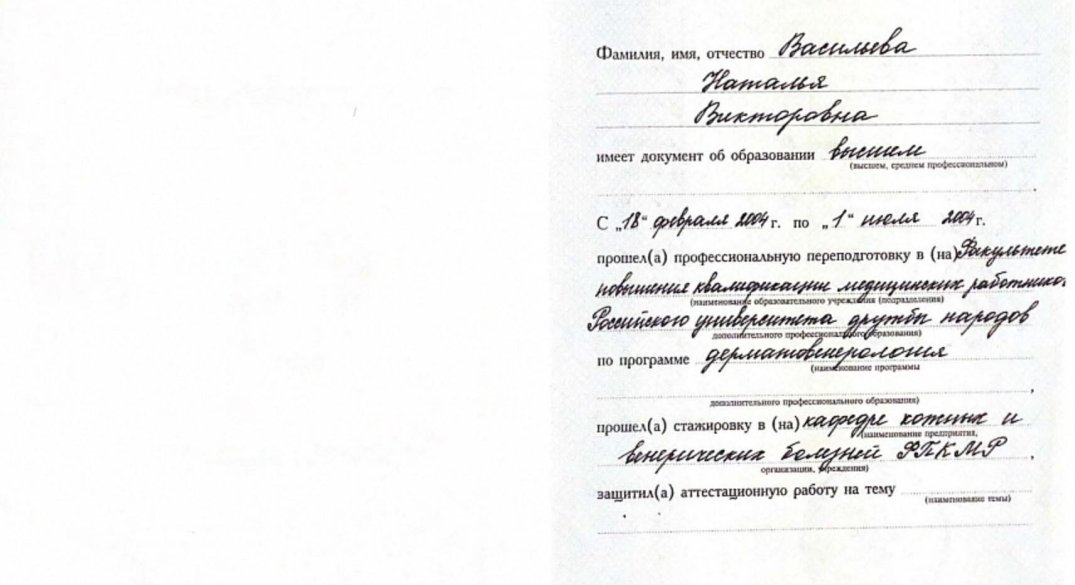 Фамилия, имя, отчество Васильева
Наталья
Викторовна
имеет документ об образовании высшем
(высшем, среднем профессиональном)
С „18“ февраля 2004 г. по „1“ июля 2004 г.
прошел(а) профессиональную переподготовку в (на) Факультете
повышения квалификации медицинских работников
(наименование образовательного учреждения (подразделения)
Российского университета дружбы народов
дополнительного профессионального образования)
по программе дерматовенерология
(наименование программы
дополнительного профессионального образования)
прошел(а) стажировку в (на) кафедре кожных и
(наименование предприятия,
венерических болезней ФПКМР,
организации, учреждения)
защитил(а) аттестационную работу на тему
(наименование темы)